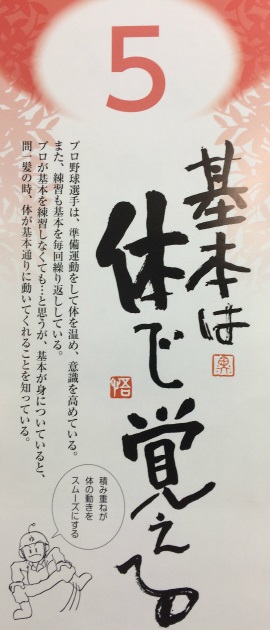 5
基本は
体で覚える
プロ野球選手は、準備運動をして体を温め、意識を高めている。
また、練習も基本を毎回繰り返ししている。
プロが基本を練習しなくても…と思うが、基本が身についていると、
間一髪の時、体が基本通りに動いてくれることを知っている。
積み重ねが
体の動きを
スムーズにする
悟